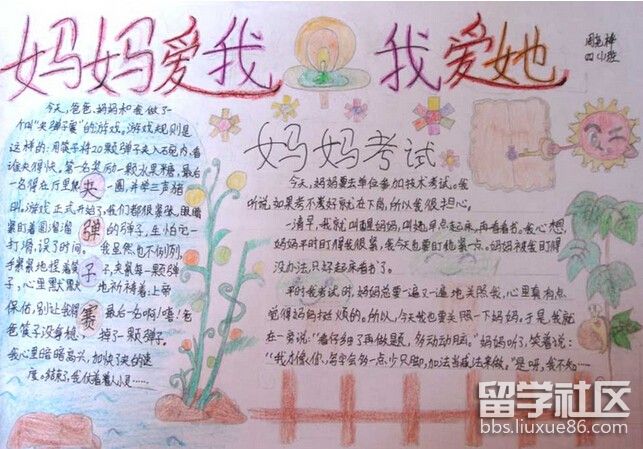 妈妈爱我 我爱她
夹弹子赛
今天,爸爸、妈妈和我做了一
个叫"夹弹子赛"的游戏。游戏规则是
这样的:用筷子将20颗弹子夹入石碗内,看
谁夹得快。第一名奖励一颗水果糖,最后
一名得在厅里爬一圈,并学三声猪
叫。游戏正式开始了,我们都很紧张,眼睛
紧盯着圆溜溜的弹子,生怕它一
打滑,误了时间。我虽然也不例外,
手紧紧地捏着筷子,夹紧每一颗弹
子,心里默默地祈祷着:上帝
保佑,别让我得最后一名啊!嘻!爸
爸筷子没夹稳,掉了一颗弹子。
我心里暗暗高兴,加快了夹的速
度。结束了,我
妈妈考试
今天,妈妈要去单位参加技术考试。我
听说,如果考不及好就在下岗,所以我很担心。
一清早,我就叫醒妈妈,叫她早点起床,再看看书。我心想,
妈妈平时盯得我很紧,我今天也要盯她紧一点。妈妈被我盯得
没办法,只好起床看书了。
平时我考试时,妈妈总要一遍又一遍地关照我,心里真有点
觉得妈妈挺烦的。所以,今天我也要关照一下妈妈。于是,我就
在一旁说:"看仔细了再做题,多动动脑。"妈妈听了,笑着说:
"我才像你,写字会多一点少只脚,加法当减法来做。"是呀,我不知……
留学社区
bbs.liuxue86.com